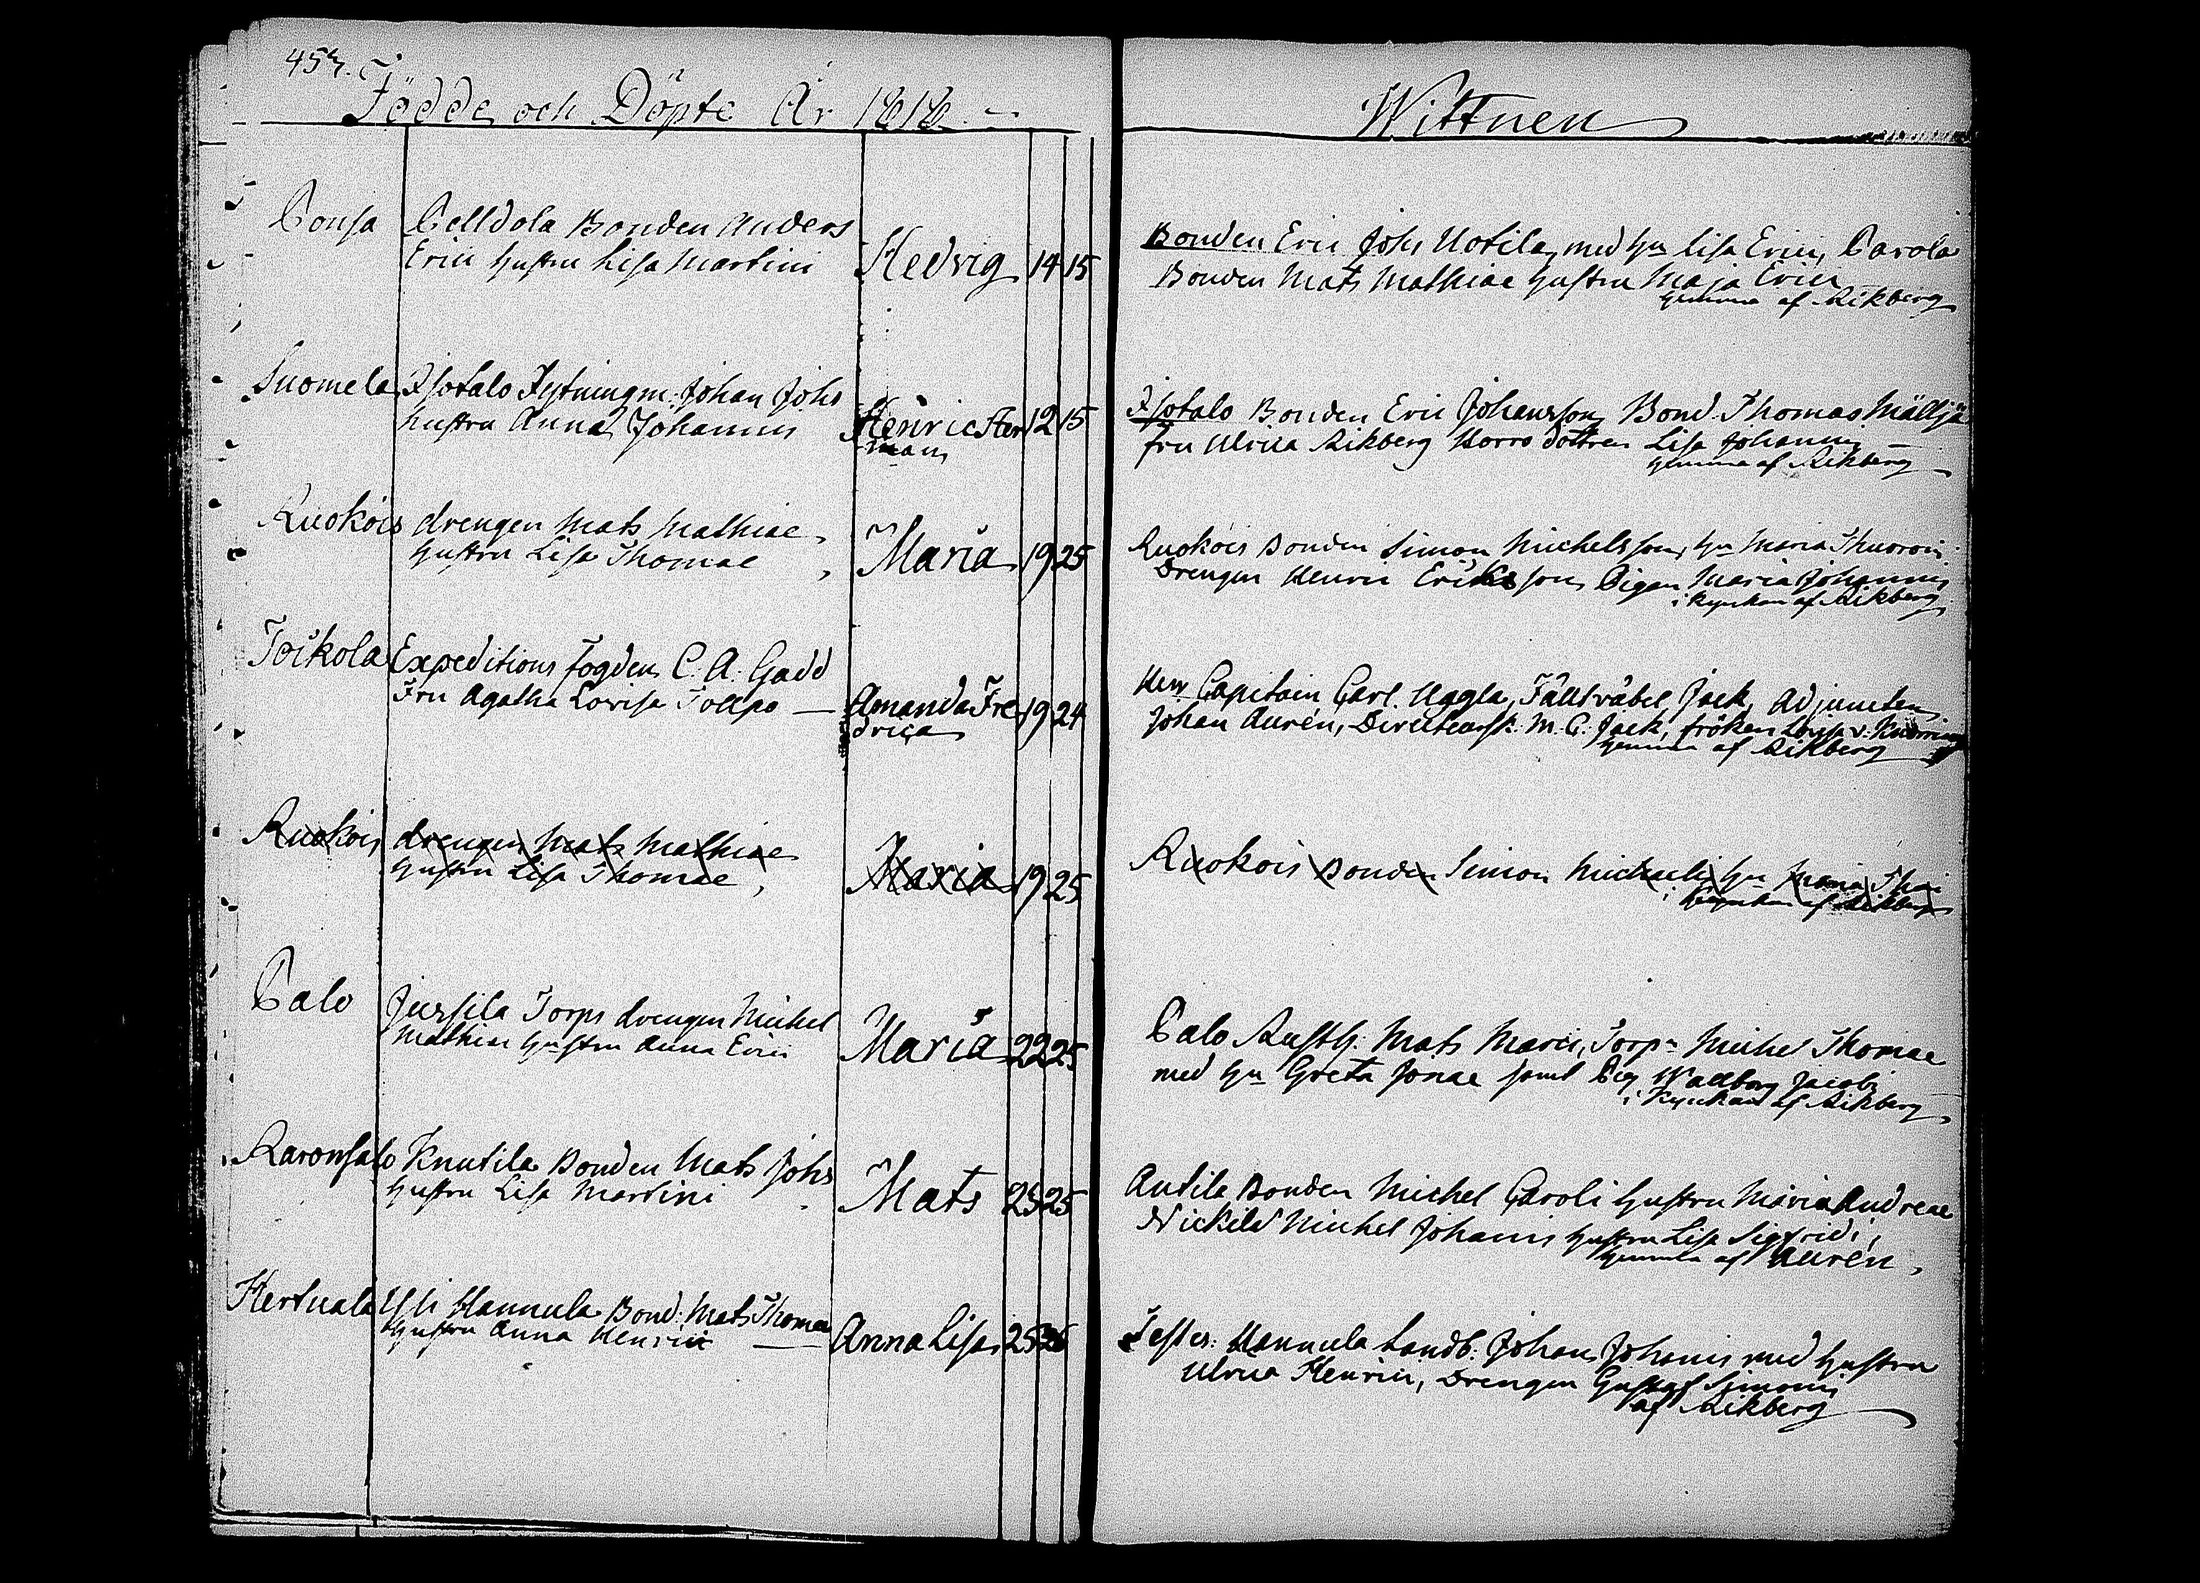 457.
Födde och Döpte År 1818.
Wittnen
Ponsa Pelldola Bonden Anders
Erici hustru Lisa Martini Hedvig 14 15
Bonden Eric Johs Uotila, med hu Lisa Erici, Parola
Bonden Mats Mathiae hustru Maja Erici
hemma af Aikberg
Suomela Isotalo Johan Johs
hustru Anna Johannis Henric Her 12 15
man
Isotalo Bonden Eric Johansson, Bond. Thomas Mälljä
fru Ulrica Aikberg Korro dottren Lisa Johannis
hemma af Aikberg
Ruokois drengen Mats Mathiae
hustru Lisa Thomae Maria 19 25
Ruokois Bonden Simon Michelsson, hu Maria
Drengen Henric Eriksson, Pigan Maria Johannis
i kyrkan af Aikberg
Toikola Expeditions fogden C. A. Gadd
Fru Agatha Lovisa Tollpo — Amanda Fre 19 24
drica
Herr Capitain Carl Uggla, Fältväbel Jack, Adjuncten
Johan Aurén, M. C. Jack, fröken Lovisa v. Knorring
hemma af Aikberg
Ruokois drengen Mats Mathiae
hustru Lisa Thomae, Maria 19 25
Ruokois Bonden Simon Michaelis hu Maria
i kyrkan af Aikberg
Palo Jussila Torps drengen Michel
Mathiae hustru Anna Erici Maria 22 25
Palo Rusth. Mats Marci, Torp. Michel Thomae
med hu Greta Jonae samt Pig. Wallborg Jacobi
i kyrkan af Aikberg
Raronsalo Knutila Bonden Mats Johs
hustru Lisa Martini Mats 25 25
Antila Bonden Michel Caroli hustru Maria Andreae
Nickilä Michel Johannis hustru Lisa Sigfridi,
hemma af Aurén
Hertuala Yli Hannula Bond: Mats Thomae
hustru Anna Henrici — Anna Lisa 25 26
Testes: Hannula Landb: Johan Johannis med hustru
Ulrica Henrici, Drengen Gustaf Simonis
af Aikberg